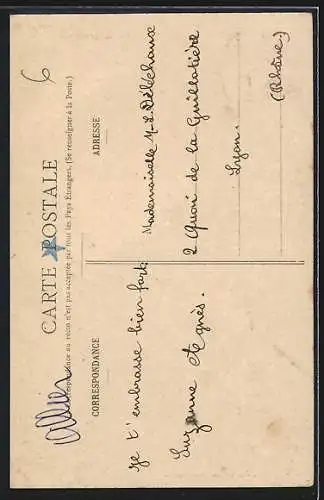 CARTE POSTALE
La Correspondance au recto n'est pas acceptée par tous les Pays Étrangers. (Se renseigner à la Poste.)
CORRESPONDANCE
Je t'embrasse bien fort.
Suzanne Agnès.
ADRESSE
Mademoiselle M-L Déléchaux
2 Quai de la Guillotière
Lyon.
(Rhône)
6
Allier